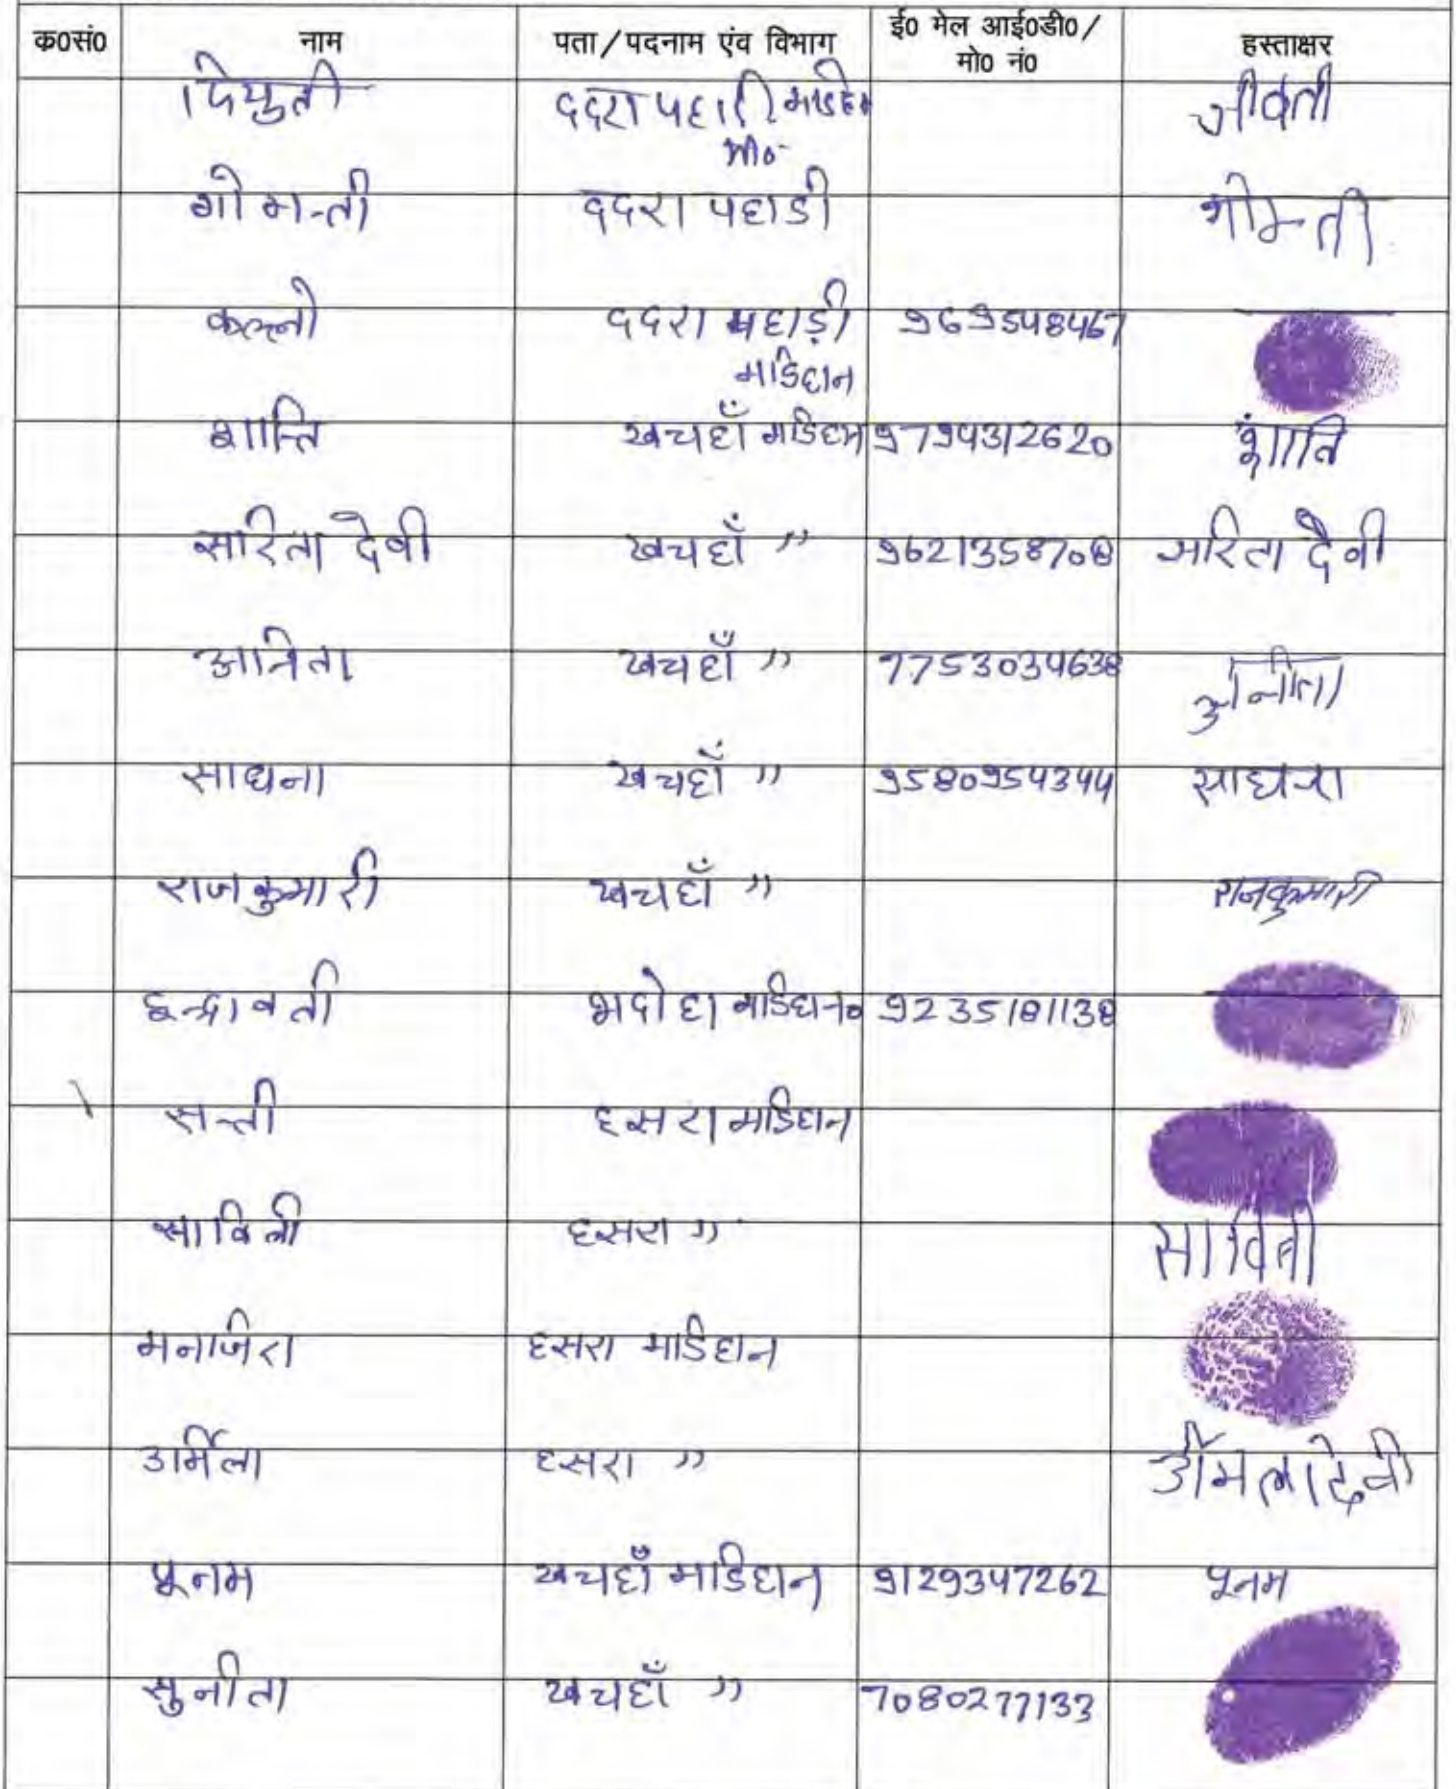 क०सं० नाम पता/पदनाम एंव विभाग ई० मेल आई०डी०/ हस्ताक्षर
मो० नं०
ददरा पहाडी
गोमन्ती ददरा पहाडी गोमन्ती
कल्लो ददरा पहाड़ी 9695548467
मडिहान
शान्ति खचहाँ मडिहान 9794312620 शांति
सरिता देवी खचहाँ " 9621358708 सरिता देवी
अनिता खचहाँ " 7753034638 अनीता
साधना खचहाँ " 9580954344 साधना
राजकुमारी खचहाँ " राजकुमारी
इन्द्रावती मडिहान 9235181138
सन्ती हसरा मडिहान
सावित्री हसरा " सावित्री
हसरा मडिहान
उर्मिला हसरा "
पूनम खचहाँ मडिहान 9129347262 पूनम
सुनीता खचहाँ " 7080277133